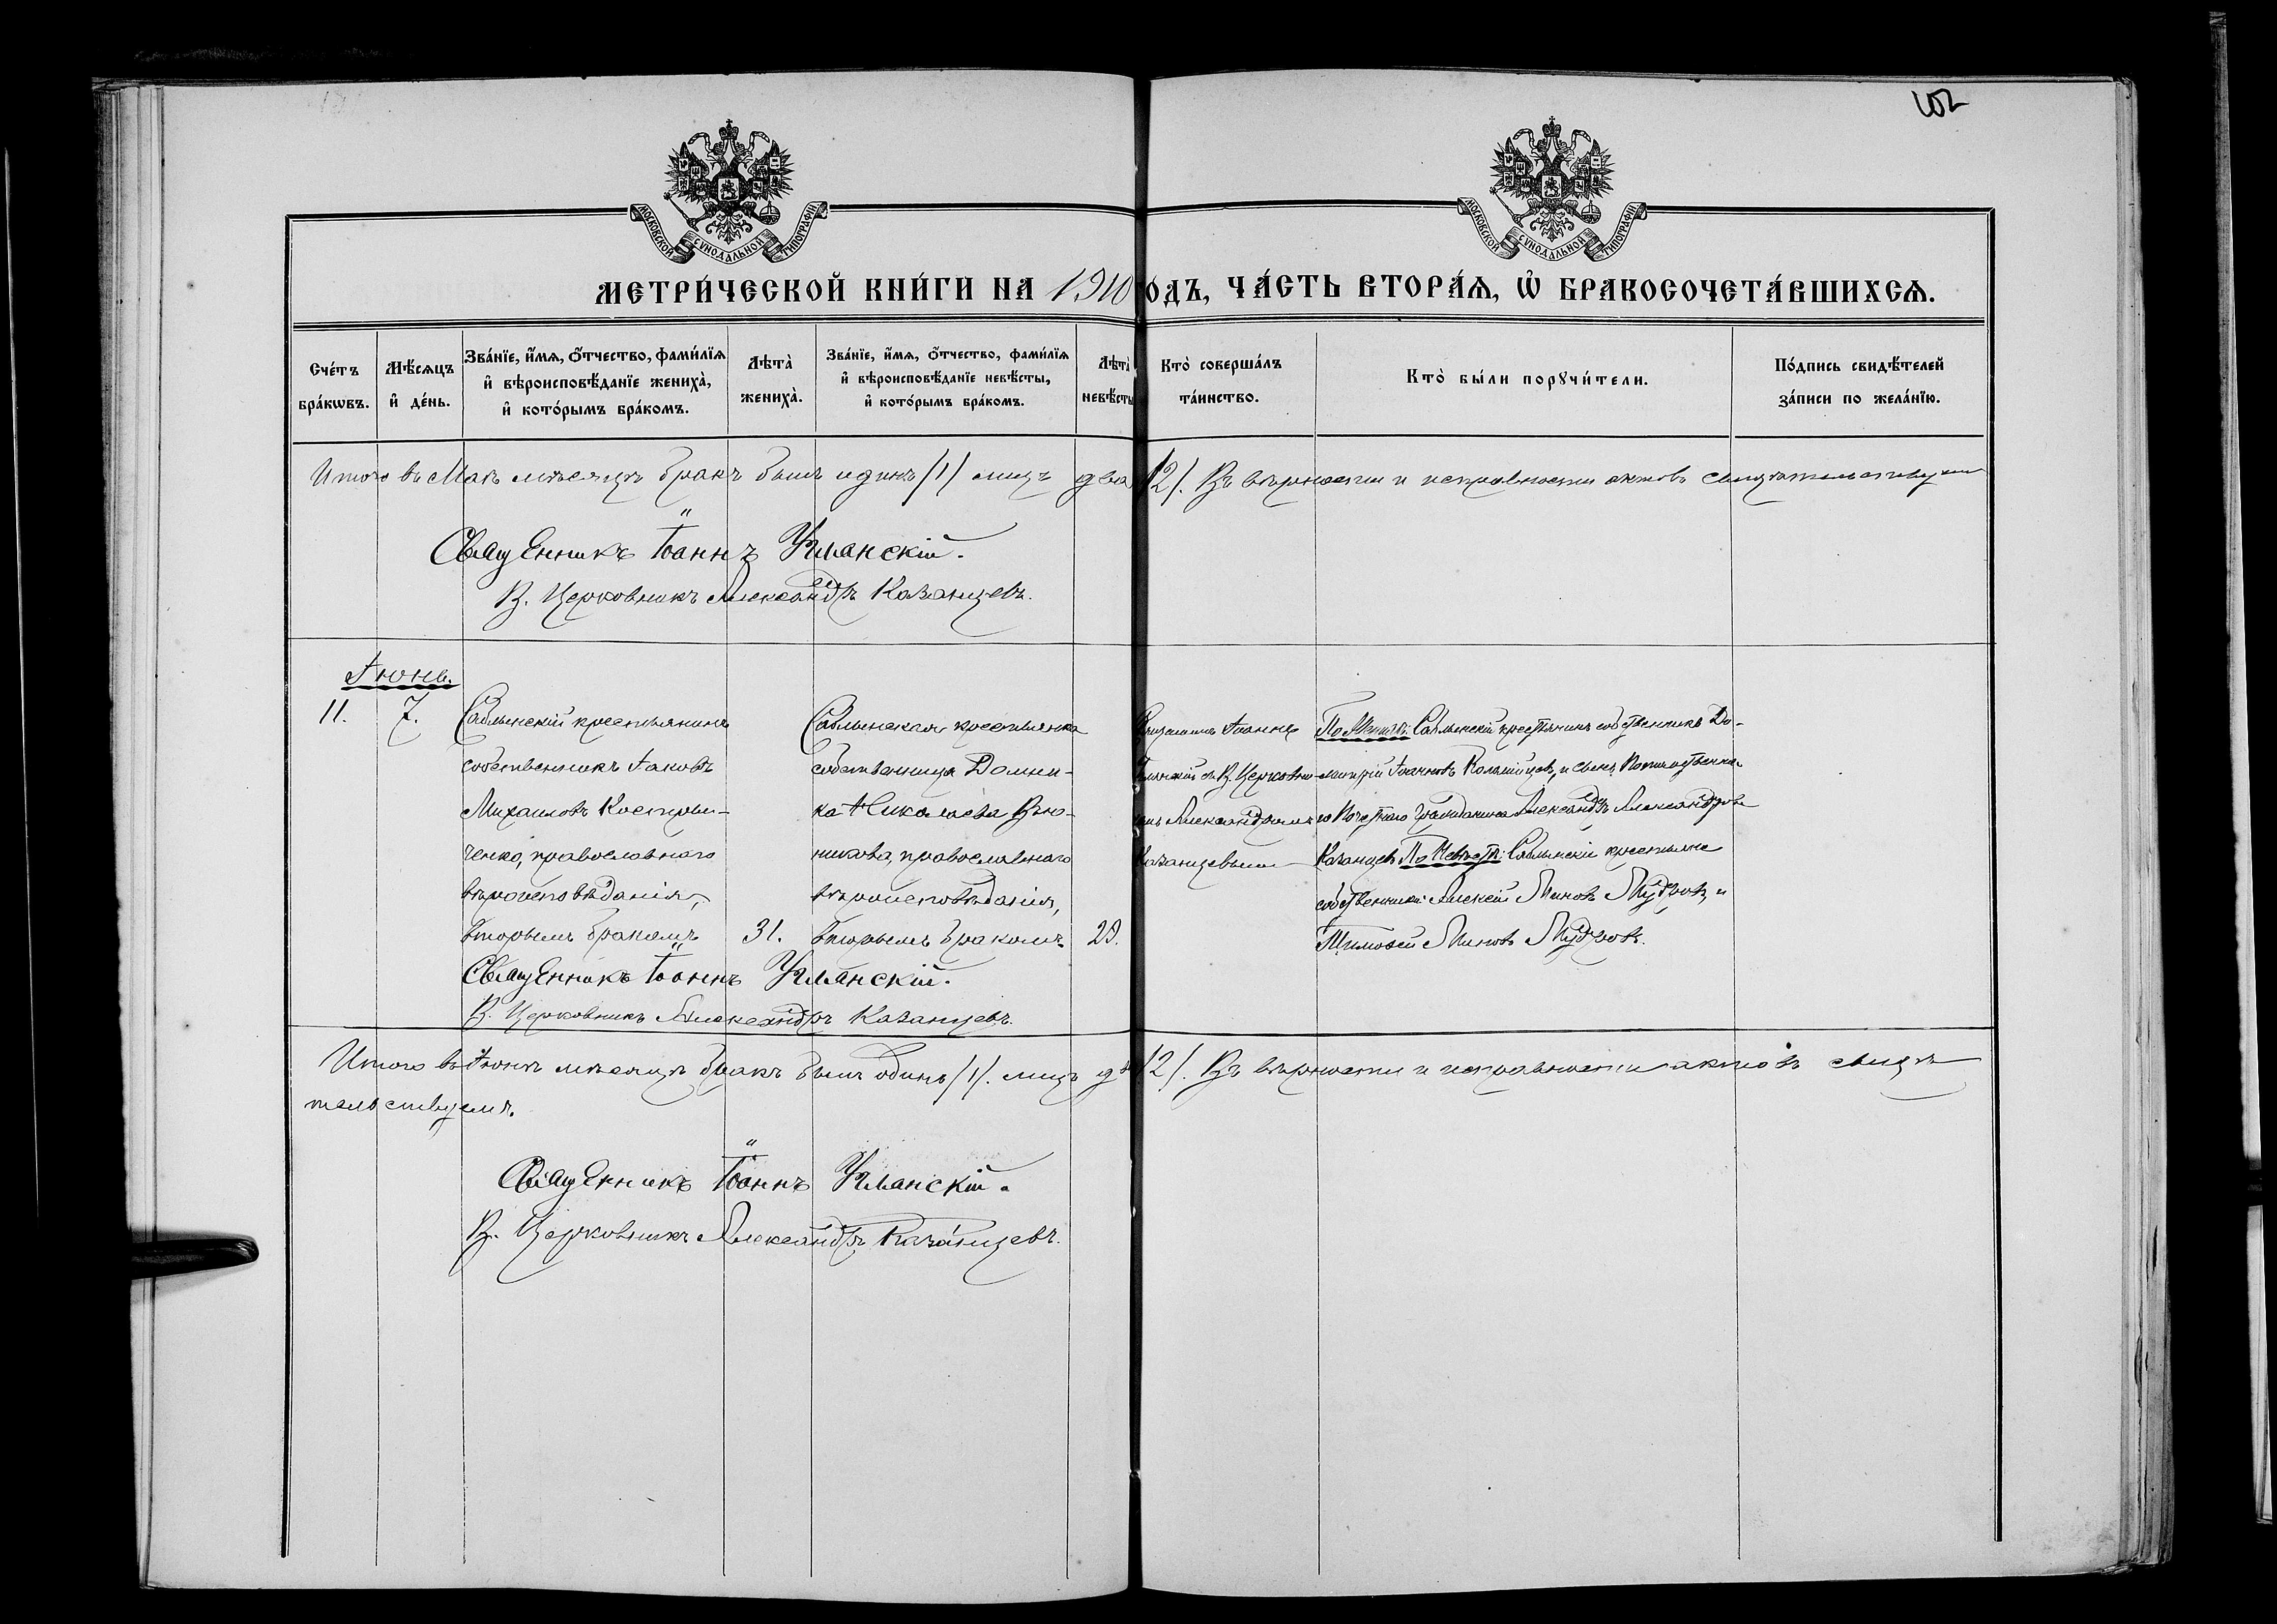 102
МОСКОВСКОЙ СУНОДАЛЬНОЙ ТИПОГРАФІИ
МОСКОВСКОЙ СУНОДАЛЬНОЙ ТИПОГРАФІИ
МЕТРИ́ЧЕСКОЙ КНИ́ГИ НА 1910 ОДЪ, ЧА́СТЬ ВТОРА́Я, Ѡ БРАКОСОЧЕТА́ВШИХСЯ.
Сче́тъ бра́кѡвъ.
Мѣ́сяцъ и҆ де́нь.
Зва́нїе, и҆́мя, ѻ҆́тчество, фами́лїя и҆ вѣроисповѣ́данїе жениха̀, и҆ кото́рымъ бра́комъ.
Лѣта̀ жениха̀.
Зва́нїе, и҆́мя, ѻ҆́тчество, фами́лїя и҆ вѣроисповѣ́данїе невѣ́сты, и҆ кото́рымъ бра́комъ.
Лѣта̀ невѣ́сты
Кто̀ соверша́лъ та́инство.
Кто̀ бы́ли порꙋчи́тели.
По́дпись свидѣ́телей за́писи по жела́нїю.
Итого въ Маѣ мѣсяцѣ бракъ былъ одинъ /1/ лицъ два /2/. Въ вѣрности и исправности актовъ свидѣтельствуемъ
Священникъ Іоаннъ Уманскій.
В. Церковникъ Александръ Казанцевъ.
Іюнь.
11.
7.
Саблинскій крестьянинъ
собственникъ Іаковъ
Михаиловъ Костров-
ченко, православнаго
вѣроисповѣданія,
вторымъ бракомъ
31.
Саблинская крестьянка
собственница Домни-
ка Николаева Вью-
никова, православнаго
вѣроисповѣданія,
вторымъ бракомъ.
29.
Іоаннъ
Уманскій съ В. Церковни-
комъ Александромъ
Казанцевымъ
По Женихѣ: Саблинскій крестьянинъ собственникъ Ди-
митрій Іоанновъ и сынъ Потомственна-
го Почетнаго Гражданина Александръ Александровъ
Казанцевъ По Невѣстѣ: Саблинскіе крестьяне
собственники Алексей Миновъ Мудровъ, и
Тимоѳей Миновъ Мудровъ.
Священникъ Іоаннъ Уманскій.
В. Церковникъ Александръ Казанцевъ.
Итого въ Іюнѣ мѣсяцѣ бракъ былъ одинъ /1/. лицъ два /2/. Въ вѣрности и исправности актовъ свидѣ
тельствуемъ.
Священникъ Іоаннъ Уманскій.
В. Церковникъ Александръ Казанцевъ.